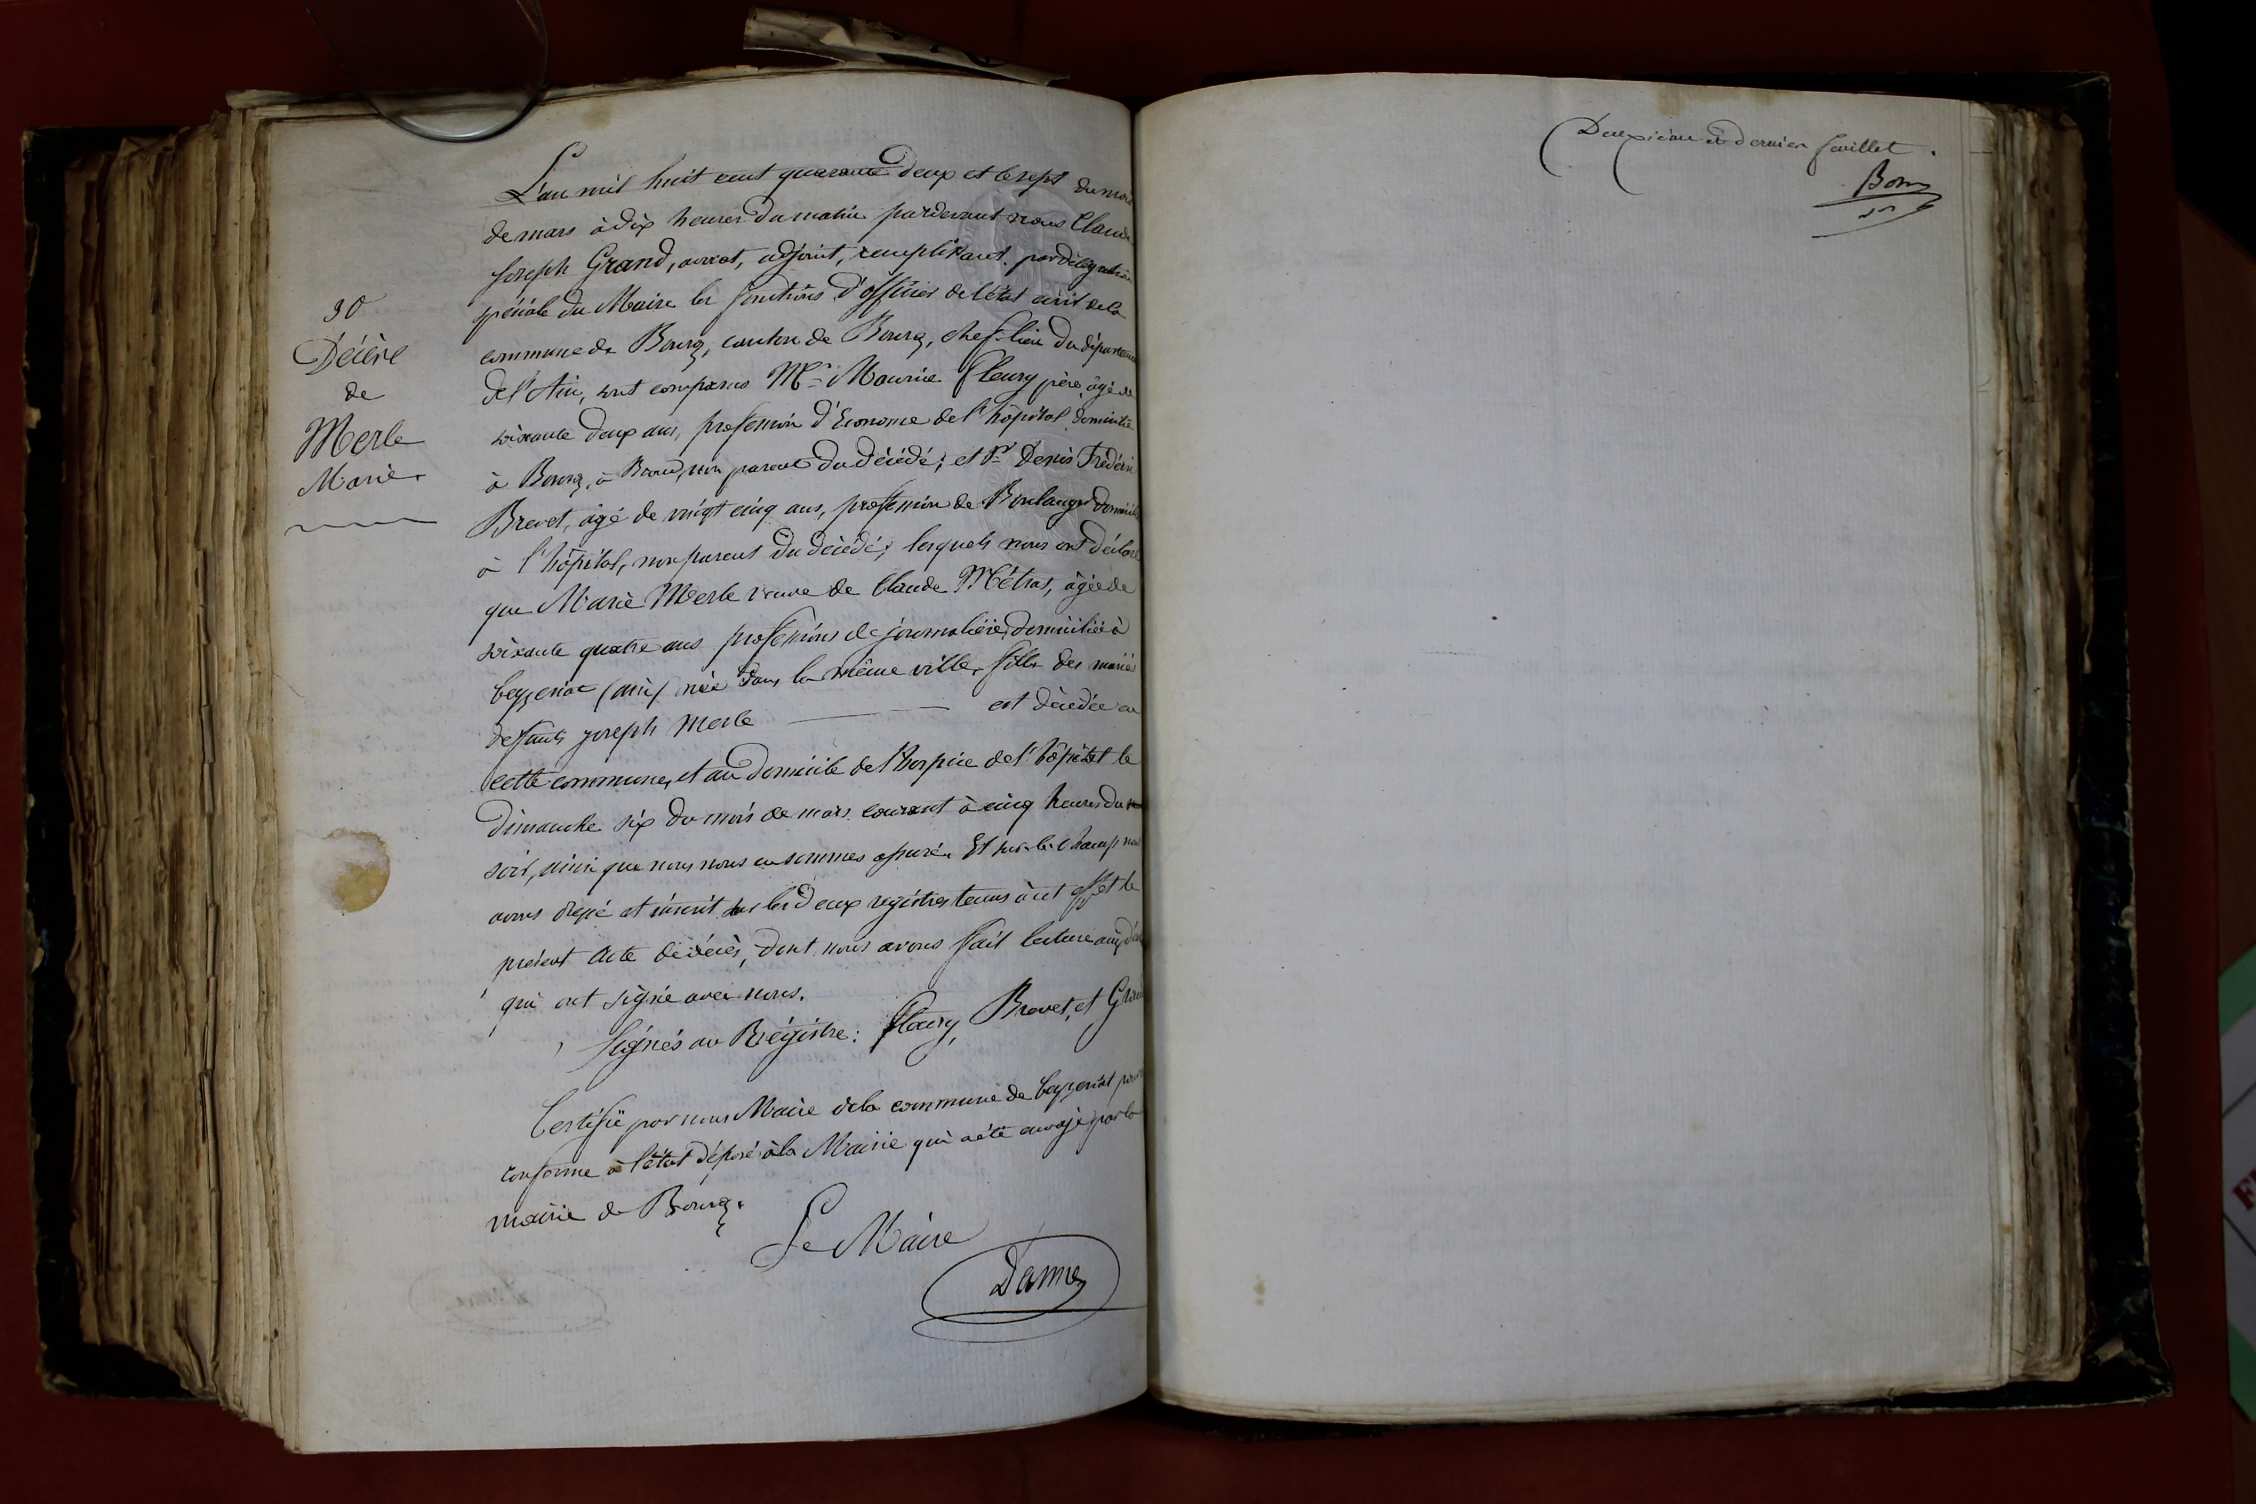 30
Décère
de
Merle
Marie.
L'an mil huit cent quarante deux et le sept du mois
de mars à dix heures du matin pardevant nous Claude
Joseph Grand, avocat, adjoint, remplissant par délégation
spéciale du Maire les fonctions d'officier de l'état civil de la
commune de Bourg, canton de Bourg, chef-lieu du département
de l'Ain, sont comparus Mr Maurice Fleury père, âgé de
soixante deux ans, profession d'Econome de l'hôpital, domicilié
à Bourg, à non parent du décédé; et Sr Denis Frédéric
Brevet, âgé de vingt cinq ans, profession de Boulanger domicilié
à l'hôpital, non parent du décédé; lesquels nous ont déclaré
que Marie Merle veuve de Claude Métras, âgée de
soixante quatre ans profession de journalière, domiciliée à
Ceyzeriat (ain) née dans la même ville, fille des mariés
deffunts joseph Merle est décédée en
cette commune, et au Domicile de l'hospice de l'hôpital le
Dimanche six du mois de mars courant à cinq heures du
soir, ainsi que nous nous en sommes assuré. Et sur le champ nous
avons dressé et inscrit sur les deux registres tenus à cet effet le
présent Acte de décès, dont nous avons fait lecture aux
qui ont signé avec nous.
Signés au Régistre: Fleury, Brevet, et Grand
Certifié par nous Maire de la commune de Ceyzeriat pour
conforme à l'état déposé à la Mairie qui a été envoyé par la
mairie de Bourg.
Le Maire
Deuxième et dernier feuillet.